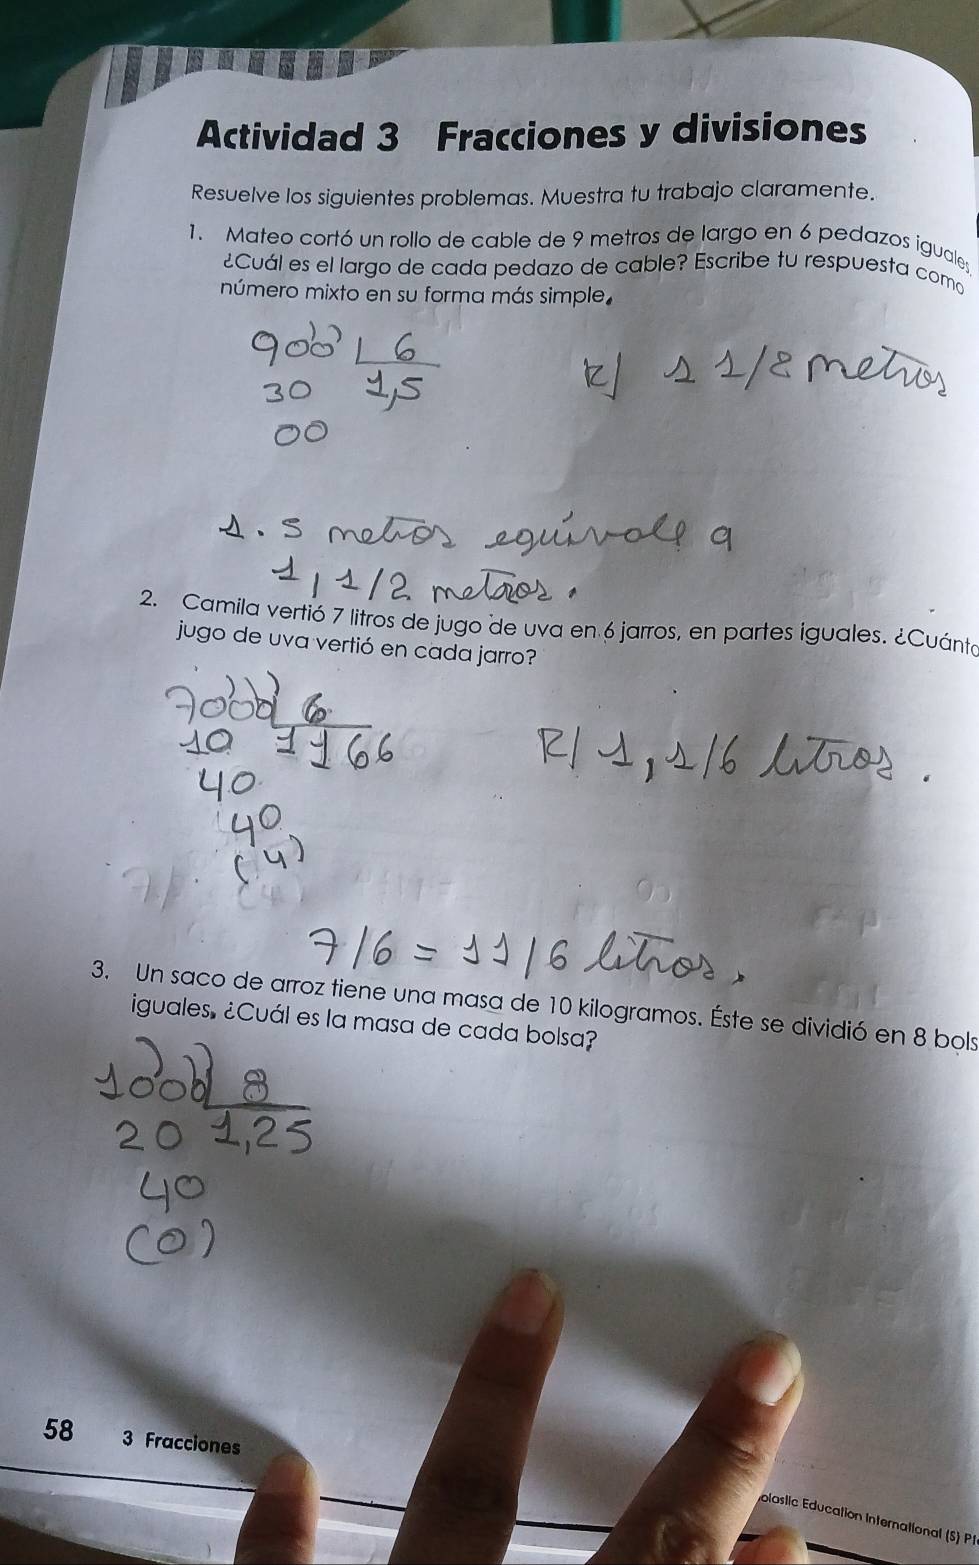 Actividad 3 Fracciones y divisiones
Resuelve los siguientes problemas. Muestra tu trabajo claramente.
1. Mateo cortó un rollo de cable de 9 metros de largo en 6 pedazos iguales.
¿Cuál es el largo de cada pedazo de cable? Escribe tu respuesta como
número mixto en su forma más simple.
900 6
30 1,5
00
R/ 1 1/2 metros
1.5 metros equivale a
1, 1/2 metros.
2. Camila vertió 7 litros de jugo de uva en 6 jarros, en partes iguales. ¿Cuánto
jugo de uva vertió en cada jarro?
7000 6
10 1166
40
40
(4)
R/ 1, 1/6 litros.
7/6 = 11/6 litros.
3. Un saco de arroz tiene una masa de 10 kilogramos. Éste se dividió en 8 bols
iguales, ¿Cuál es la masa de cada bolsa?
1000 8
20 1,25
40
(0)
58 3 Fracciones
olastic Education International (S) P